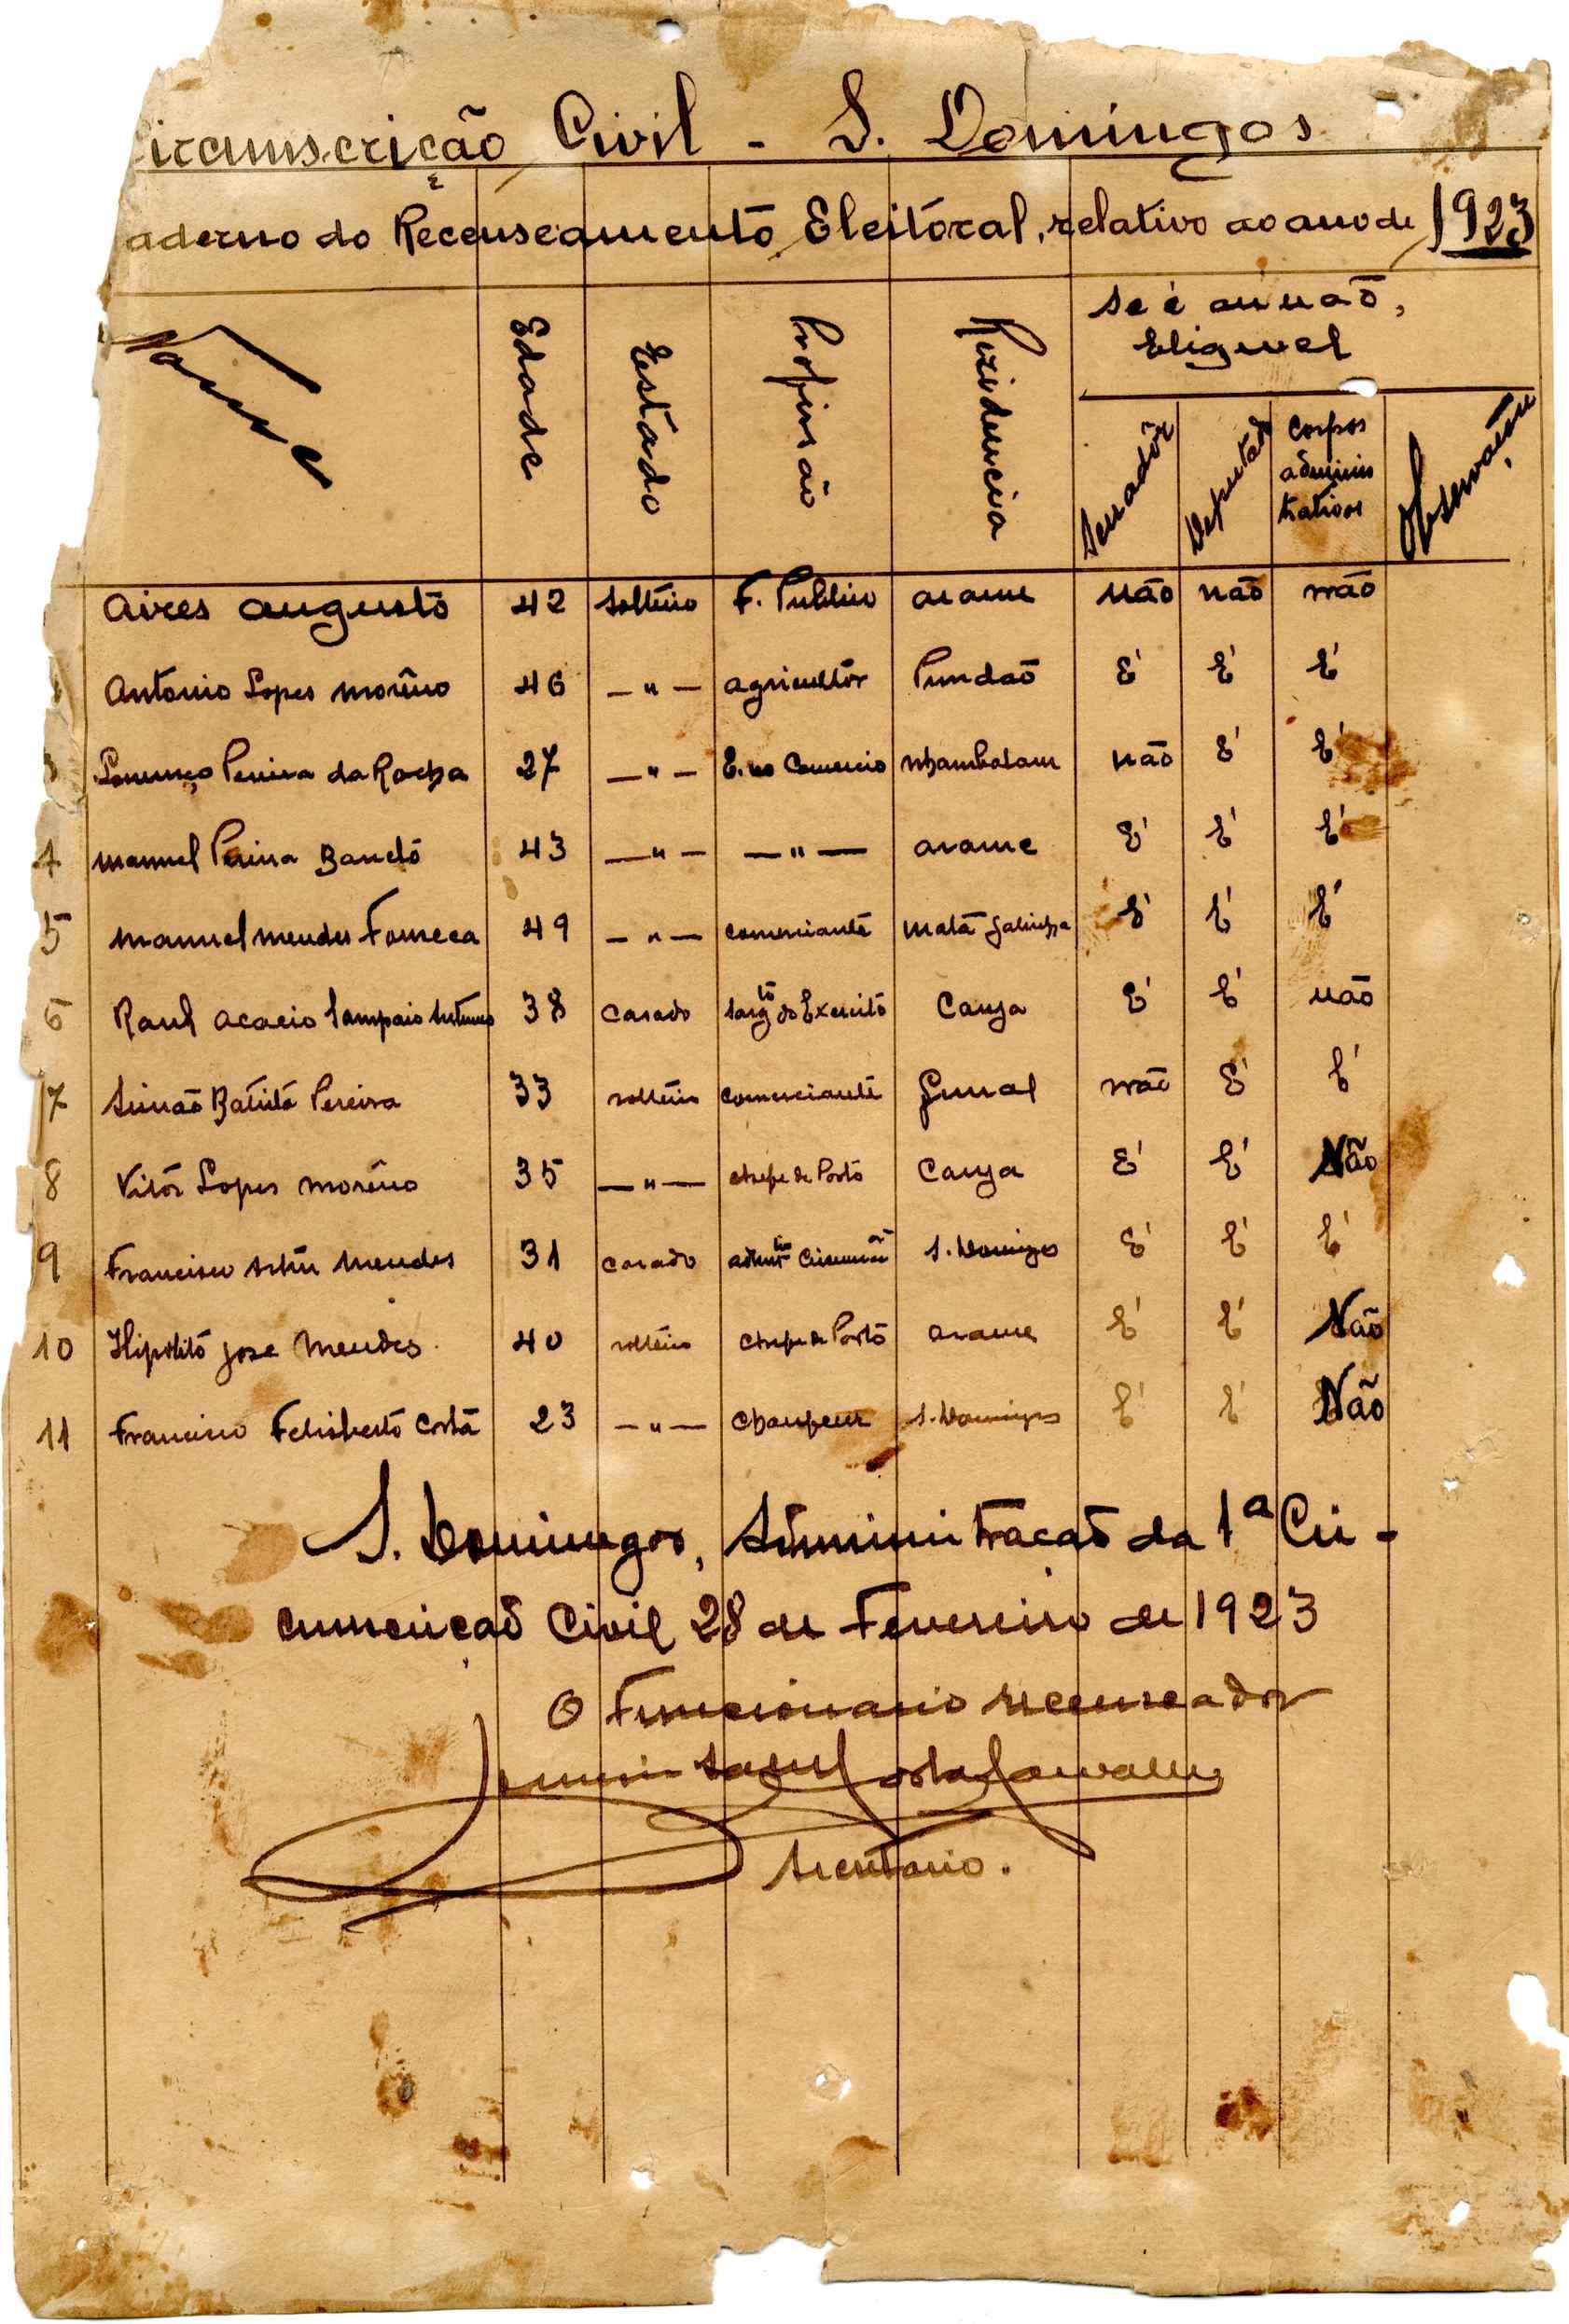 ircunscrição Civil - S. Domingos
aderno do Recenseamento Eleitóral, relativo ao ano de 1923
Nome Edade Estado Profissão Rezidencia Se é ou não, Eligivel
Senadôr Deputado Corpos adminis trativos Observações
Aires Augusto 42 solteiro F. Publico não não não
Antonio Lopes morêno 46 — " — agricultôr Pundaõ E' E' E'
3 Lourenço Pereira da Rocha 27 — " — E. no Comercio não E' E'
4 Manuel Pereira 43 — " — — " — E' E' E'
5 Manuel Mendes Fonseca 49 — " — comerciante Mata galinha E' E' E'
6 Raul Acacio Sampaio Antunes 38 casado Sargto do Exercito E' E' não
7 Simaõ Batista Pereira 33 solteiro comerciante Funal não E' E'
8 Vitôr Lopes morêno 35 — " — chefe de Posto E' E' Não
9 Francisco Artur Mendes 31 casado S. Domingos E' E' E'
10 Hipolito jose Mendes 40 solteiro chefe de Posto E' E' Não
11 Francisco Felisberto Costa 23 — " — chaufeur S. Domingos E' E' Não
S. Domingos, Administracaõ da 1ª Cir-
cunscricaõ Civil 28 de Fevereiro de 1923
O Funcionario recenseador
Costa Carvalho
Secretario.